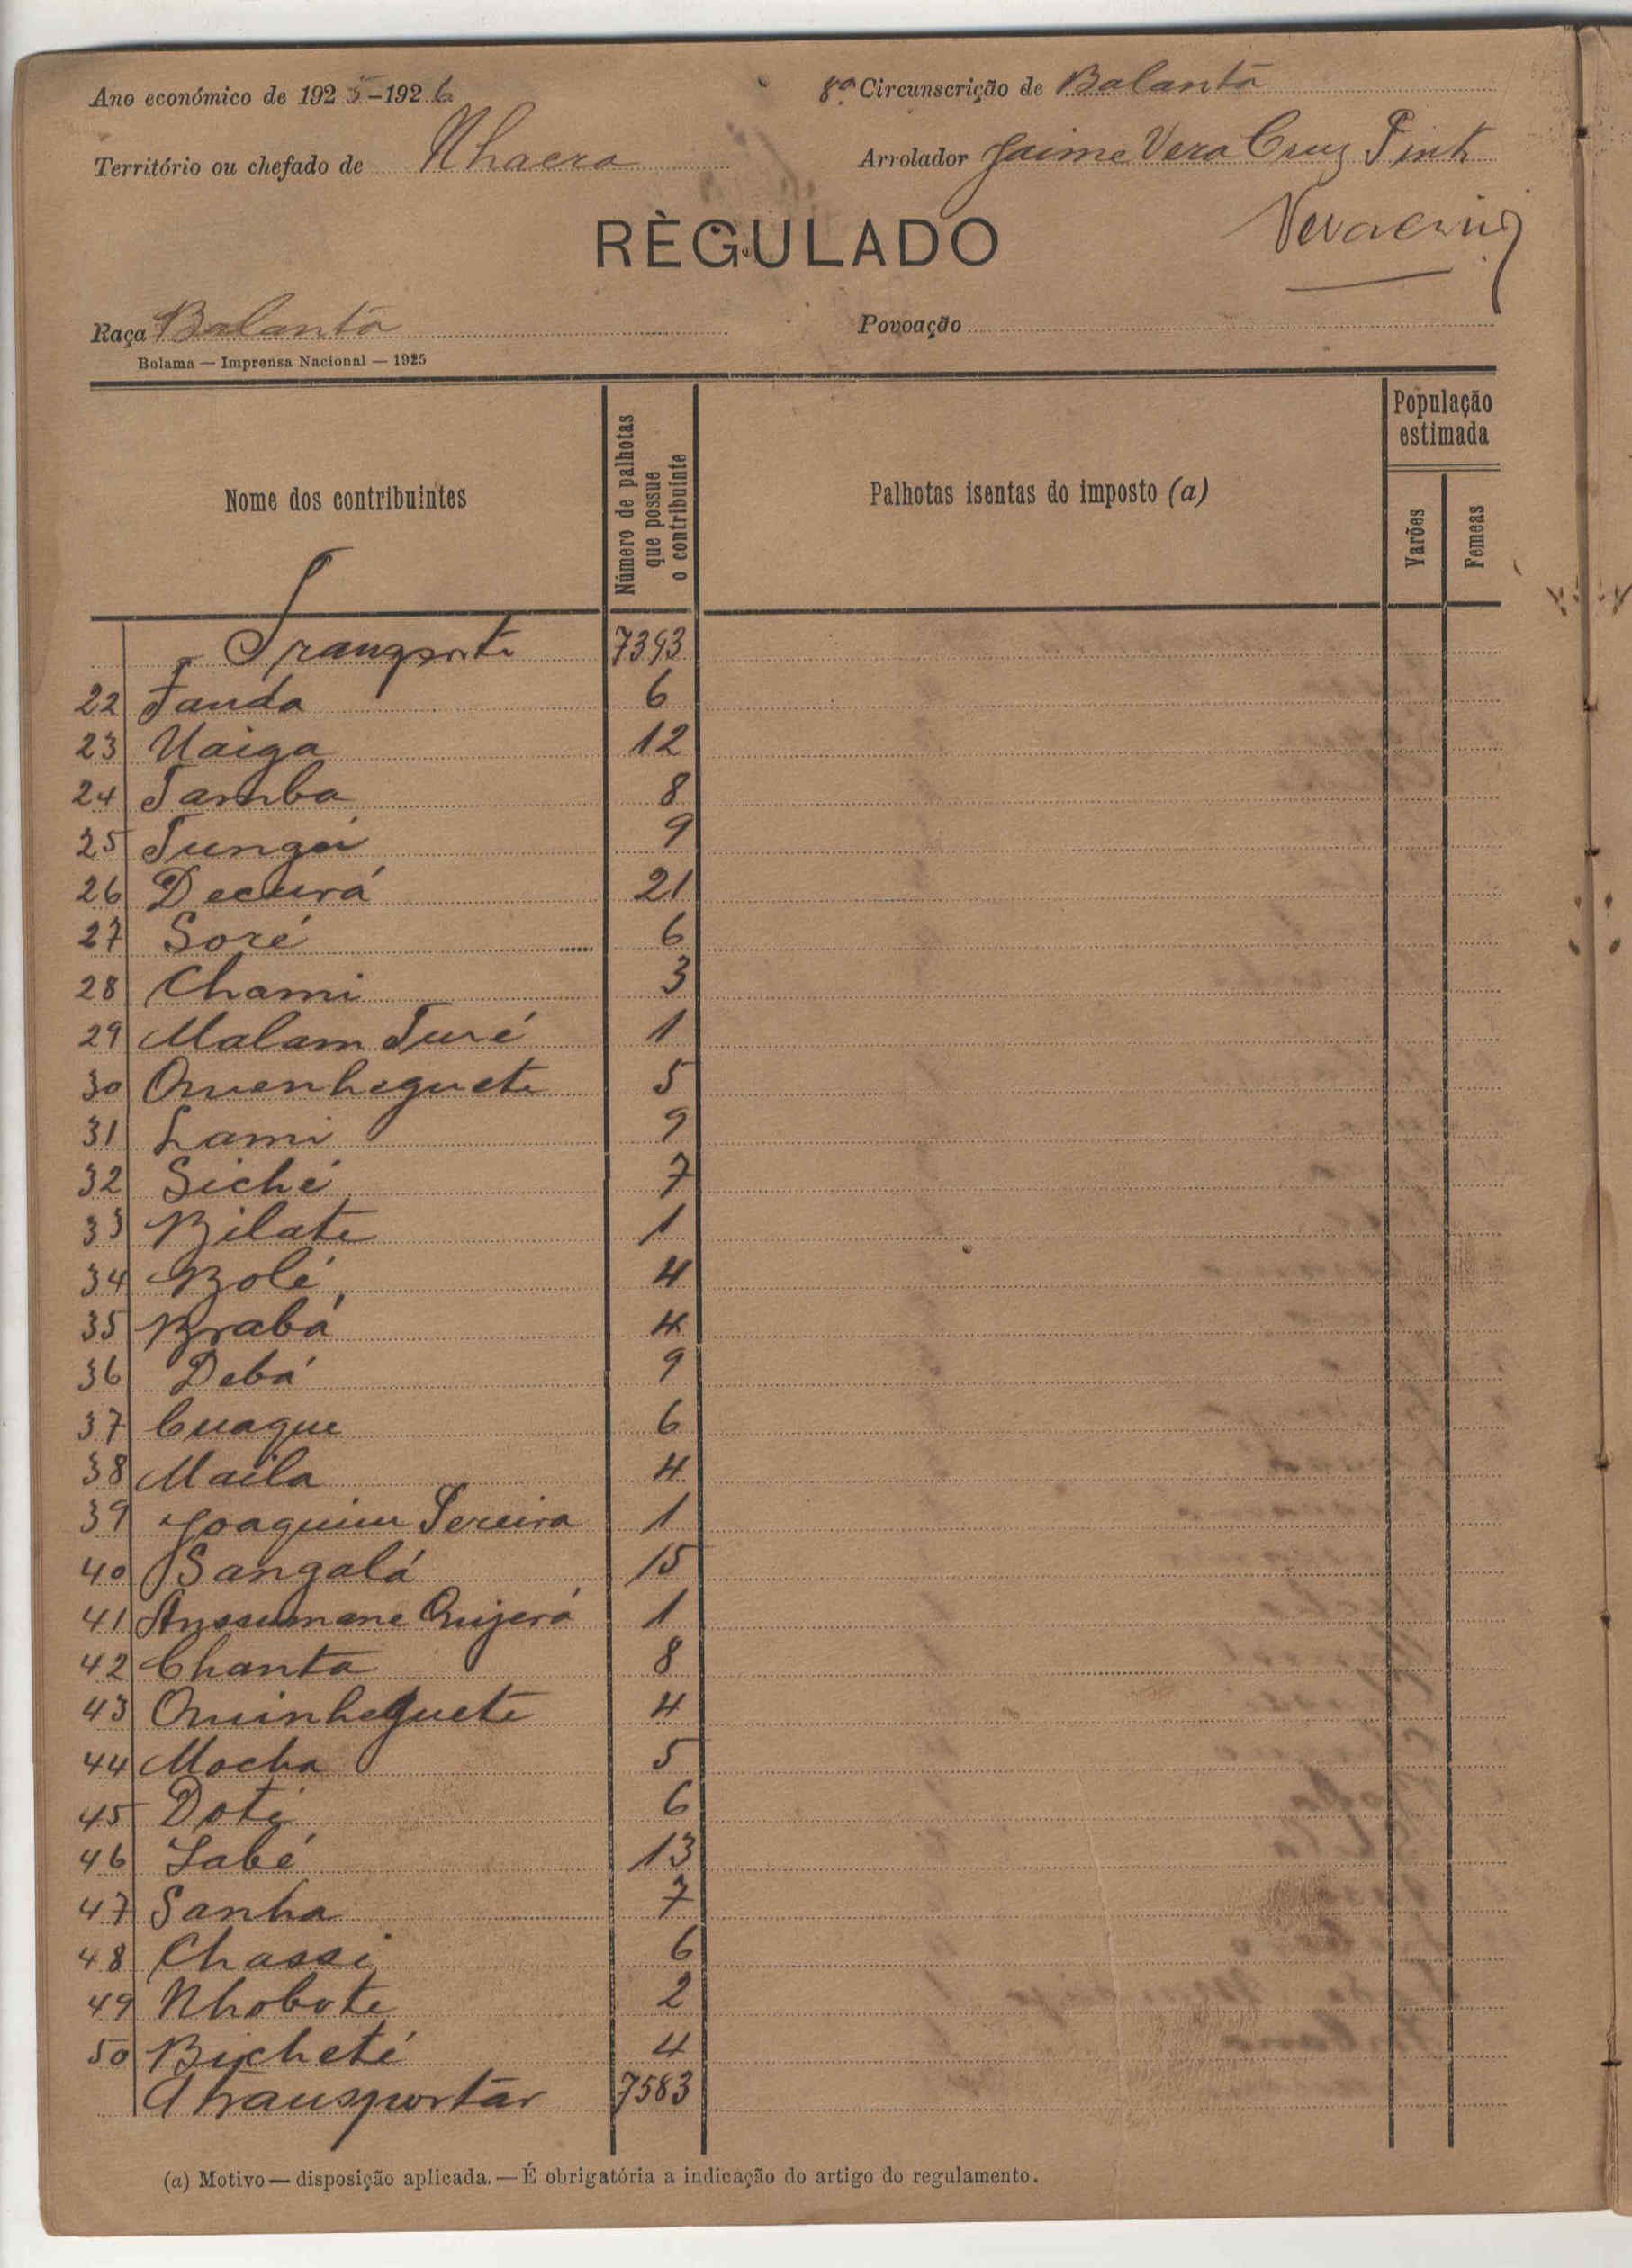 Ano económico de 1925-1926
8ª Circunscrição de Balanta
Território ou chefado de Nhacra
Arrolador Jaime Vera Cruz Pinto
RÈGULADO
Veracruz
Raça Balanta
Povoação
Bolama — Imprensa Nacional — 1925
Nome dos contribuintes
Número de palhotas que possue o contribuinte
Palhotas isentas do imposto (a)
População estimada
Varões
Femeas
Transporte 7393
22 Fanda 6
23 Naiga 12
24 Tamba 8
25 Tungui 9
26 Decurá 21
27 Soré 6
28 Chami 3
29 Malam Turé 1
30 Quenheguete 5
31 Lami 9
32 Siché 7
33 Bilate 1
34 Bolé 4
35 Brabá 4
36 Debá 9
37 Cuaque 6
38 Maila 4
39 Joaquim Pereira 1
40 Sangalá 15
41 Anssumane Quigerá 1
42 Chanta 8
43 Quinheguete 4
44 Mocha 5
45 Doti 6
46 Labé 13
47 Sanha 7
48 Chassi 6
49 Nhobote 2
50 Bicheté 4
A transportar 7583
(a) Motivo — disposição aplicada. — É obrigatória a indicação do artigo do regulamento.